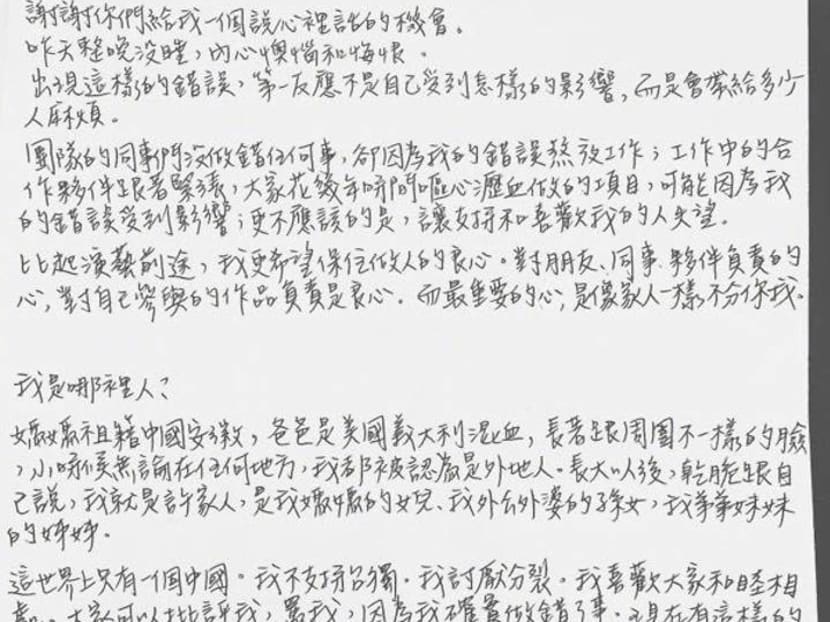 謝謝你們給我一個說心裡話的機會。
昨天整晚沒睡，內心懊惱和悔恨。
出現這樣的錯誤，第一反應不是自己受到怎樣的影響，而是會帶給多少
人麻煩。
團隊的同事們沒做錯任何事，卻因為我的錯誤熬夜工作；工作中的合
作夥伴跟著緊張，大家花幾年時間嘔心瀝血做的項目，可能因為我
的錯誤受到影響；更不應該的是，讓支持和喜歡我的人失望。
比起演藝前途，我更希望保住做人的良心。對朋友、同事、夥伴負責的
心，對自己參與的作品負責是良心。而最重要的心，是像家人一樣不分你我。
我是哪裡人？
媽媽祖籍中國安徽，爸爸是美國義大利混血，長著跟周圍不一樣的臉
，小時候無論在任何地方，我都被認為是外地人。長大以後，乾脆跟自
己說，我就是許家人，是我媽媽的女兒、我外公外婆的孫女，我弟弟妹妹
的姊姊。
這世界上只有一個中國。我不支持台獨。我討厭分裂。我喜歡大家和睦相
處。大家可以批評我，罵我，因為我確實做錯了事。現在有這樣的